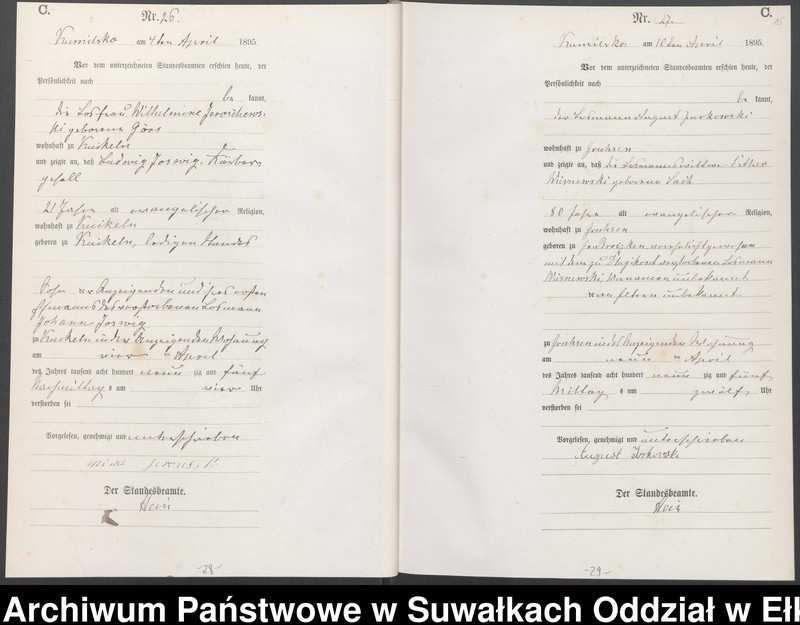 C.
Nr. 26.
Kumilsko am 4ten April 1895.
Vor dem unterzeichneten Standesbeamten erschien heute, der
Persönlichkeit nach
be kannt,
die Losfrau Wilhelmine Jeroschews-
ki geborene Görs
wohnhaft zu Knickeln
und zeigte an, daß Ludwig Joswig,
gesell
21 Jahre alt evangelischer Religion,
wohnhaft zu Knikeln
geboren zu Knikeln, ledigen Standes
Sohn der Anzeigenden und ihres ersten
Ehemanns des verstorbenen Losmann
Johann Joswig
zu Knickeln in der Anzeigenden Wohnung
am vier ten April
des Jahres tausend acht hundert neun zig und fünf
Nachmittag s um vier Uhr
verstorben sei
Vorgelesen, genehmigt und unterschrieben
Der Standesbeamte.
Hein
-28-
Nr. 27.
C.
15
Kumilsko am 10ten April 1895.
Vor dem unterzeichneten Standesbeamten erschien heute, der
Persönlichkeit nach
be kannt,
der Losmann August Jurkowski
wohnhaft zu Gruhsen
und zeigte an, daß die Losmannswittwe Esther
Wisnewski geborene Sack
80 Jahre alt evangelischer Religion,
wohnhaft zu Gruhsen
geboren zu verehelicht gewesen
mit dem zu Dlugikont verstorbenen Losmann
Wisnewski Vornamen unbekannt
deren Eltern unbekannt
zu Gruhsen in des Anzeigenden Wohnung
am neun ten April
des Jahres tausend acht hundert neun zig und fünf
Mittag s um zwölf Uhr
verstorben sei
Vorgelesen, genehmigt und unterschrieben
August Jorkowski
Der Standesbeamte.
Hein
-29-
Archiwum Państwowe w Suwałkach Oddział w Ełk